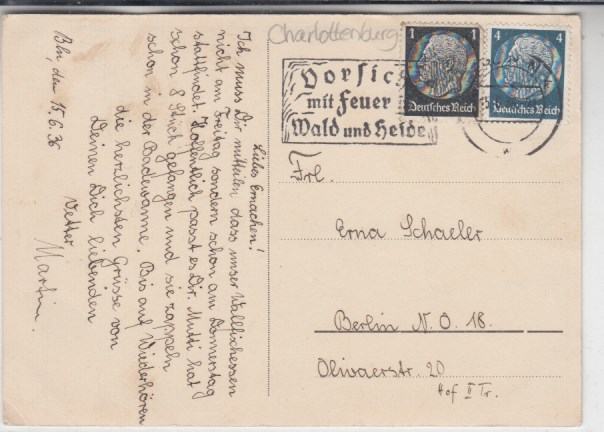 Charlottenburg
1
Deutsches Reich
4
Deutsches Reich
Vorsic
mit Feuer
Wald und Heide
Frl.
Erna Schaeler
Berlin N. O. 18.
Olivaerstr. 20
Hof II Tr.
Bln, den 15.6.36
Liebes Ernachen!
Ich muss Dir mitteilen dass unser
nicht am Freitag sondern schon am Donnerstag
stattfindet. Hoffentlich passt es Dir. Mutti hat
schon 8 Stück gefangen und sie zappeln
schon in der Badewanne. Bis auf Wiederhören
die herzlichsten Grüsse von
Deinen Dich liebenden
Vetter
Martin.